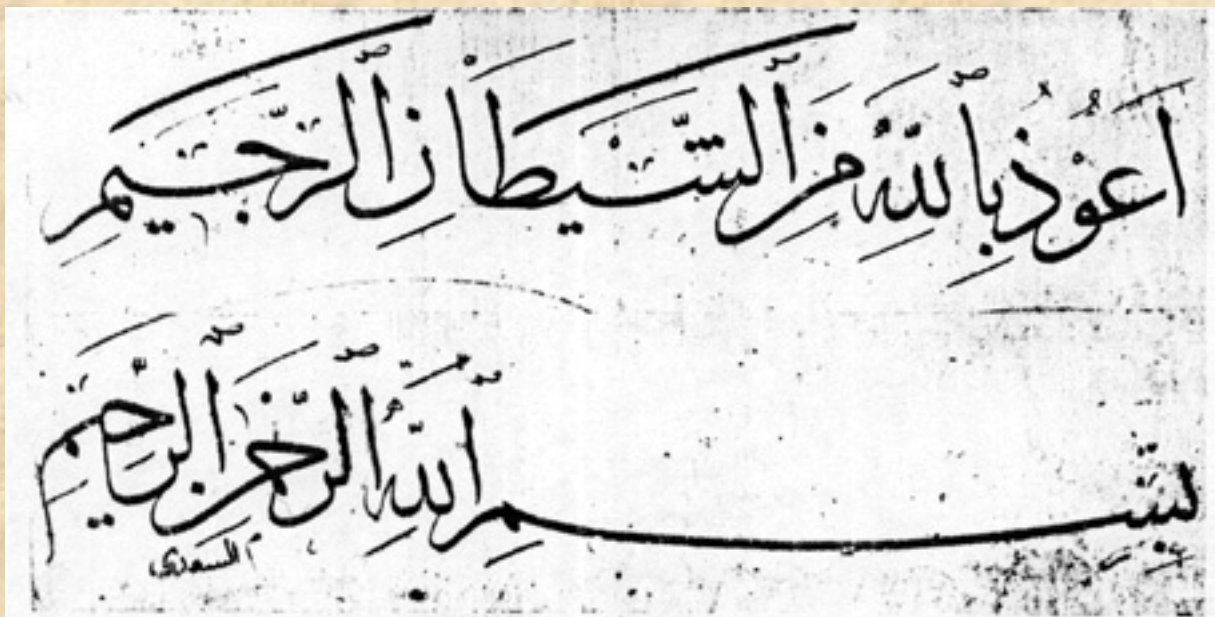 اَعُوْذُ بِاللّٰهِ مِنَ الشَّيْطَانِ الرَّجِيْمِ
بِسْمِ اللّٰهِ الرَّحْمٰنِ الرَّحِيْمِ